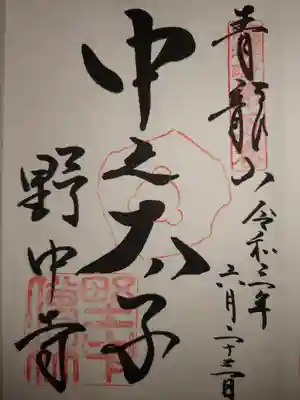 青龍山
令和三年
六月二十三日
中之太子
野中寺